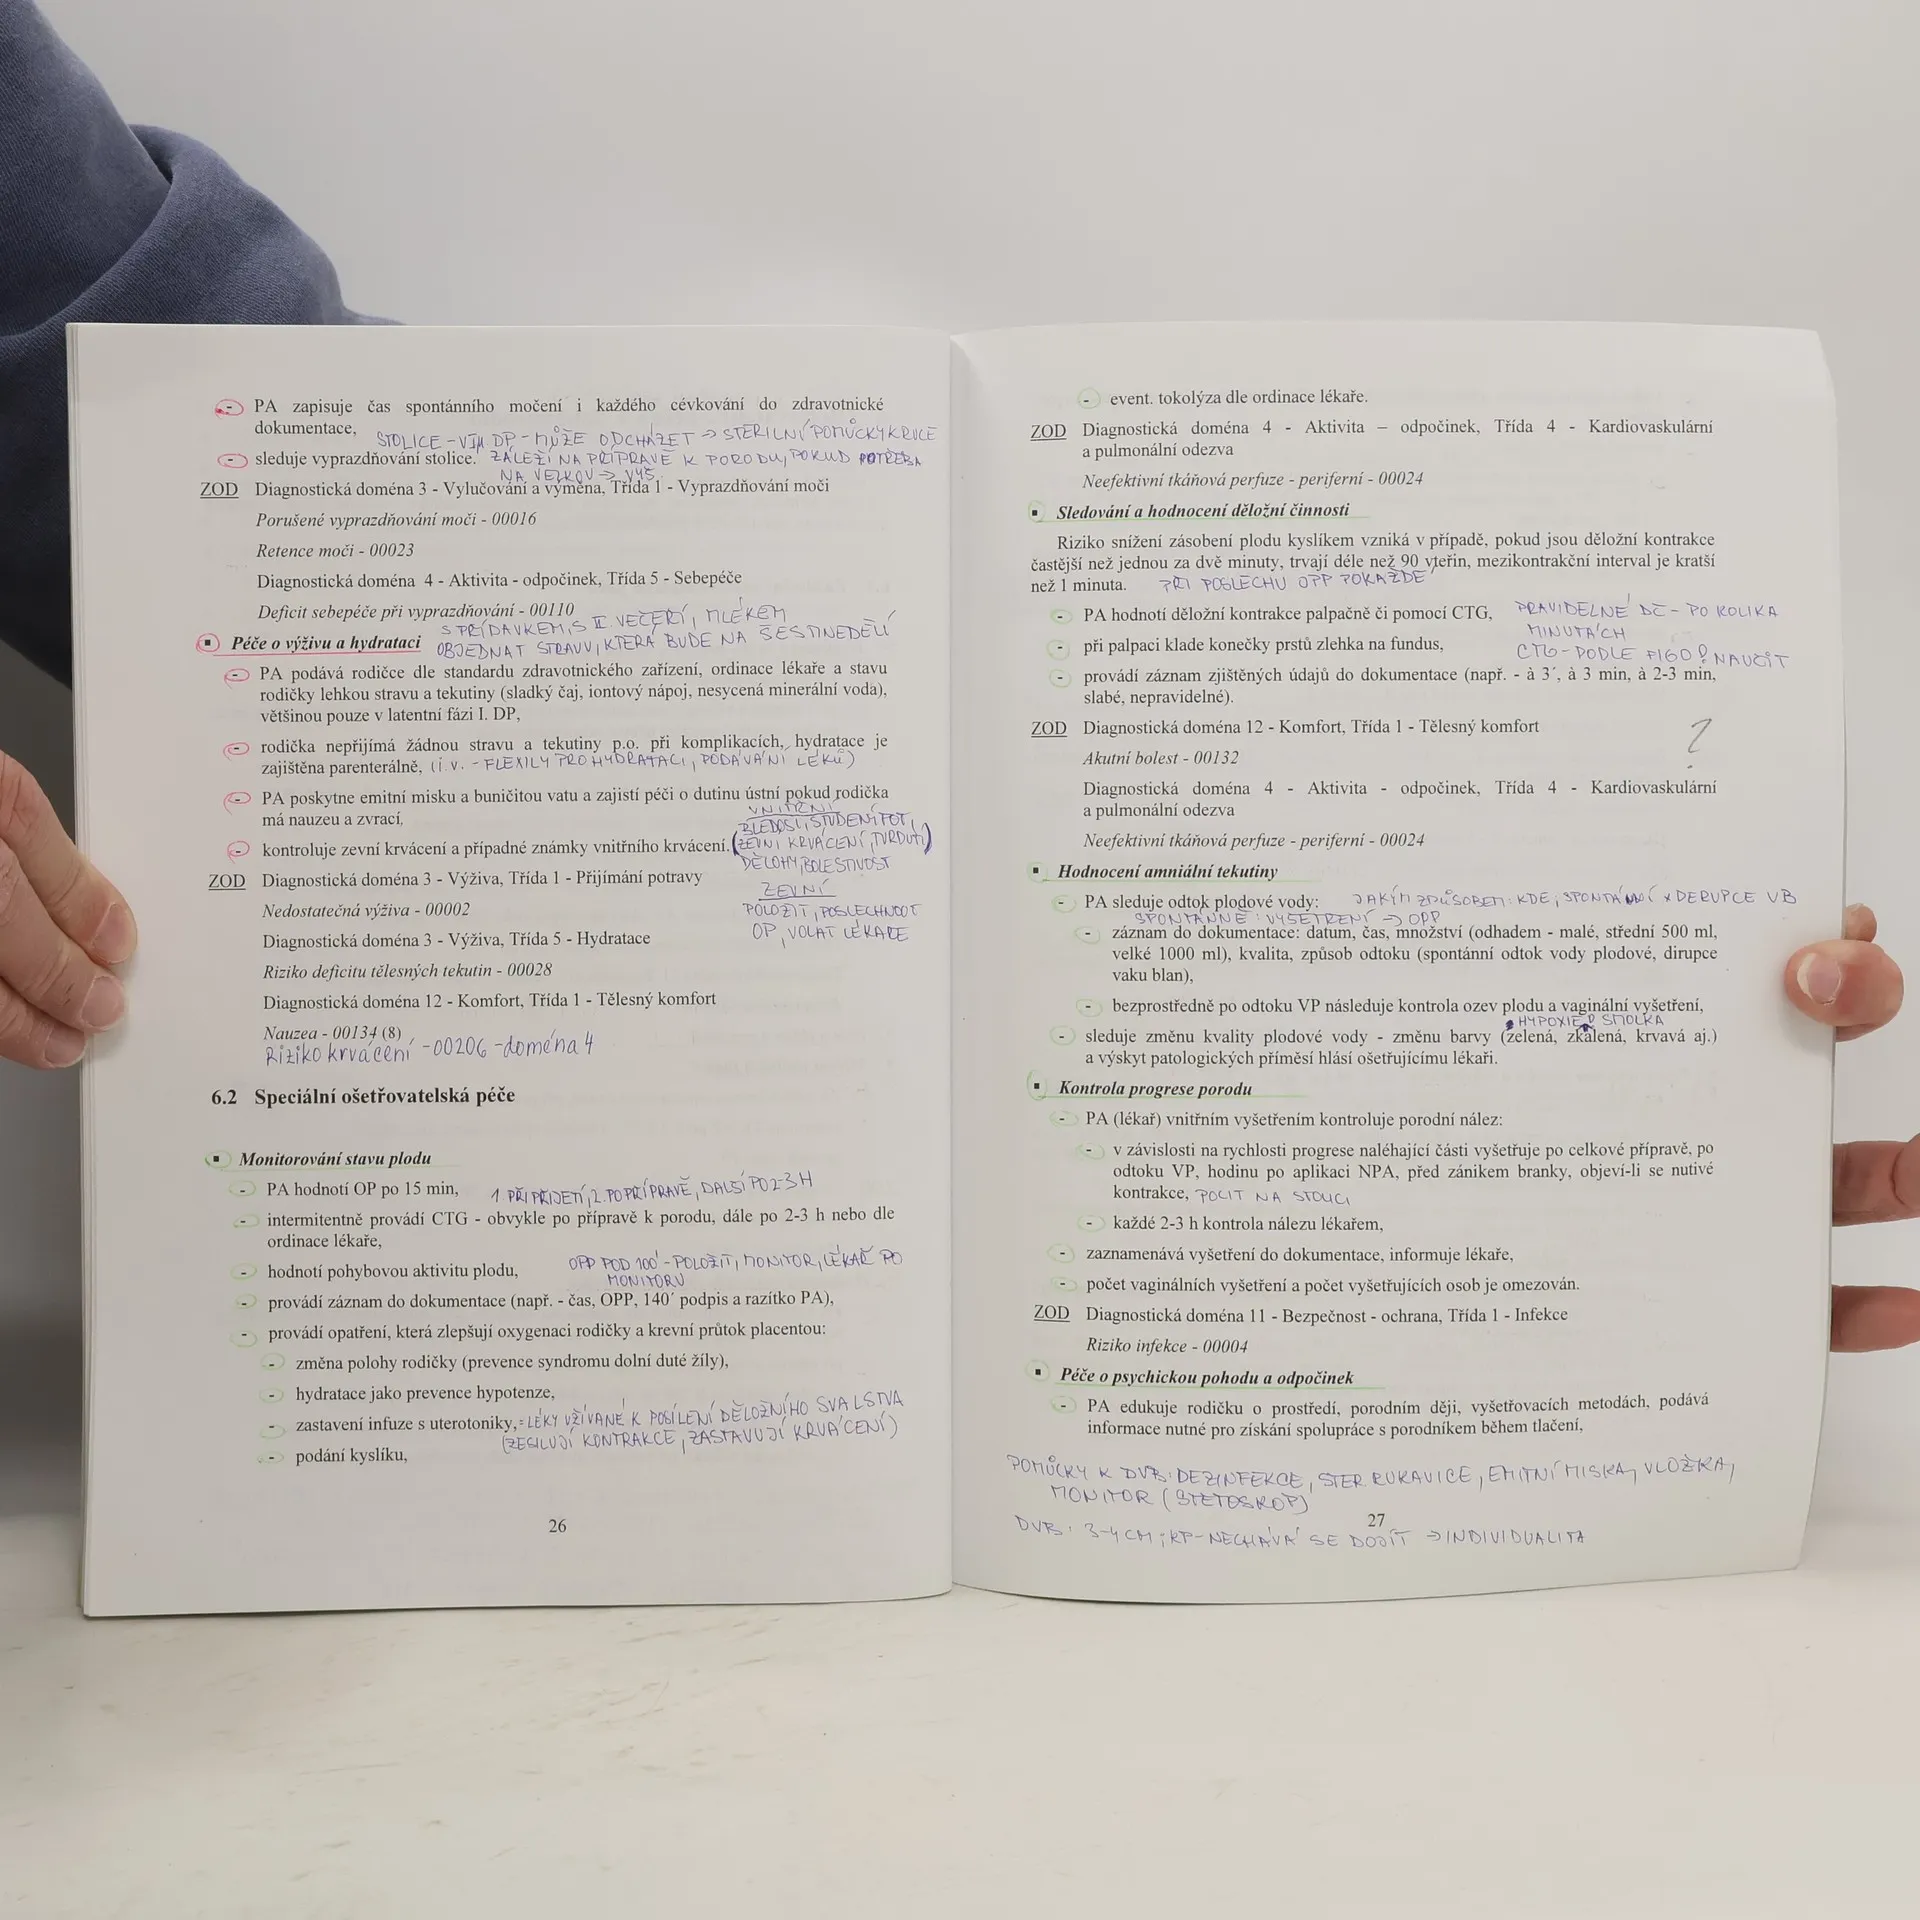 - PA zapisuje čas spontánního močení i každého cévkování do zdravotnické
dokumentace,
STOLICE - VIM DP - MŮŽE ODCHÁZET → STERILNÍ POMŮCKY
- sleduje vyprazdňování stolice. ZÁLEŽÍ NA PŘÍPRAVĚ K PORODU, POKUD POTŘEBA
NA VELKOU →
ZOD Diagnostická doména 3 - Vylučování a výměna, Třída 1 - Vyprazdňování moči
Porušené vyprazdňování moči - 00016
Retence moči - 00023
Diagnostická doména 4 - Aktivita - odpočinek, Třída 5 - Sebepéče
Deficit sebepéče při vyprazdňování - 00110
S PŘÍDAVKEM, S II. VEČEŘÍ, MLÉKEM
▪ Péče o výživu a hydrataci OBJEDNAT STRAVU, KTERÁ BUDE NA ŠESTINEDĚLÍ
- PA podává rodičce dle standardu zdravotnického zařízení, ordinace lékaře a stavu
rodičky lehkou stravu a tekutiny (sladký čaj, iontový nápoj, nesycená minerální voda),
většinou pouze v latentní fázi I. DP,
- rodička nepřijímá žádnou stravu a tekutiny p.o. při komplikacích, hydratace je
zajištěna parenterálně, (i.v. - FLEXILY PRO HYDRATACI, PODÁVÁNÍ LÉKŮ)
- PA poskytne emitní misku a buničitou vatu a zajistí péči o dutinu ústní pokud rodička
má nauzeu a zvrací,
VNITŘNÍ
BLEDOST, STUDENÝ POT,
- kontroluje zevní krvácení a případné známky vnitřního krvácení. (ZEVNÍ KRVÁCENÍ, TVRDUTÍ)
DĚLOHY, BOLESTIVOST
ZOD Diagnostická doména 3 - Výživa, Třída 1 - Přijímání potravy
ZEVNÍ
Nedostatečná výživa - 00002
POLOŽIT, POSLECHNOUT
Diagnostická doména 3 - Výživa, Třída 5 - Hydratace
OP, VOLAT LÉKAŘE
Riziko deficitu tělesných tekutin - 00028
Diagnostická doména 12 - Komfort, Třída 1 - Tělesný komfort
Nauzea - 00134 (8)
Riziko krvácení - 00206 - doména 4
6.2 Speciální ošetřovatelská péče
▪ Monitorování stavu plodu
- PA hodnotí OP po 15 min, 1. PŘI PŘIJETÍ, 2. PO PŘÍPRAVĚ, DALŠÍ PO 2-3 H
- intermitentně provádí CTG - obvykle po přípravě k porodu, dále po 2-3 h nebo dle
ordinace lékaře,
- hodnotí pohybovou aktivitu plodu, OPP POD 100' - POLOŽIT, MONITOR, LÉKAŘ PO
MONITORU
- provádí záznam do dokumentace (např. - čas, OPP, 140´ podpis a razítko PA),
- provádí opatření, která zlepšují oxygenaci rodičky a krevní průtok placentou:
- změna polohy rodičky (prevence syndromu dolní duté žíly),
- hydratace jako prevence hypotenze,
- zastavení infuze s uterotoniky, = LÉKY UŽÍVANÉ K POSÍLENÍ DĚLOŽNÍHO SVALSTVA
(ZESILUJÍ KONTRAKCE, ZASTAVUJÍ KRVÁCENÍ)
- podání kyslíku,
26
- event. tokolýza dle ordinace lékaře.
ZOD Diagnostická doména 4 - Aktivita – odpočinek, Třída 4 - Kardiovaskulární
a pulmonální odezva
Neefektivní tkáňová perfuze - periferní - 00024
▪ Sledování a hodnocení děložní činnosti
Riziko snížení zásobení plodu kyslíkem vzniká v případě, pokud jsou děložní kontrakce
častější než jednou za dvě minuty, trvají déle než 90 vteřin, mezikontrakční interval je kratší
než 1 minuta. PŘI POSLECHU OPP POKAŽDÉ
- PA hodnotí děložní kontrakce palpačně či pomocí CTG, PRAVIDELNÉ DČ - PO KOLIKA
MINUTÁCH
- při palpaci klade konečky prstů zlehka na fundus, CTG - PODLE FIGO! NAUČIT
- provádí záznam zjištěných údajů do dokumentace (např. - à 3´, à 3 min, à 2-3 min,
slabé, nepravidelné).
ZOD Diagnostická doména 12 - Komfort, Třída 1 - Tělesný komfort ?
Akutní bolest - 00132
Diagnostická doména 4 - Aktivita - odpočinek, Třída 4 - Kardiovaskulární
a pulmonální odezva
Neefektivní tkáňová perfuze - periferní - 00024
▪ Hodnocení amniální tekutiny
- PA sleduje odtok plodové vody: JAKÝM ZPŮSOBEM: KDE, SPONTÁNNÍ x DERUPCE VB
SPONTÁNNĚ: VYŠETŘENÍ → OPP
- záznam do dokumentace: datum, čas, množství (odhadem - malé, střední 500 ml,
velké 1000 ml), kvalita, způsob odtoku (spontánní odtok vody plodové, dirupce
vaku blan),
- bezprostředně po odtoku VP následuje kontrola ozev plodu a vaginální vyšetření,
HYPOXIE SMOLKA
- sleduje změnu kvality plodové vody - změnu barvy (zelená, zkalená, krvavá aj.)
a výskyt patologických příměsí hlásí ošetřujícímu lékaři.
▪ Kontrola progrese porodu
- PA (lékař) vnitřním vyšetřením kontroluje porodní nález:
- v závislosti na rychlosti progrese naléhající části vyšetřuje po celkové přípravě, po
odtoku VP, hodinu po aplikaci NPA, před zánikem branky, objeví-li se nutivé
kontrakce, POCIT NA STOLICI
- každé 2-3 h kontrola nálezu lékařem,
- zaznamenává vyšetření do dokumentace, informuje lékaře,
- počet vaginálních vyšetření a počet vyšetřujících osob je omezován.
ZOD Diagnostická doména 11 - Bezpečnost - ochrana, Třída 1 - Infekce
Riziko infekce - 00004
▪ Péče o psychickou pohodu a odpočinek
- PA edukuje rodičku o prostředí, porodním ději, vyšetřovacích metodách, podává
informace nutné pro získání spolupráce s porodníkem během tlačení,
POMŮCKY K DVB: DEZINFEKCE, STER RUKAVICE, EMITNÍ MISKA, VLOŽKA,
MONITOR (STETOSKOP)
27
DVB: 3-4 CM; KP - NECHÁVÁ SE DOJÍT → INDIVIDUALITA